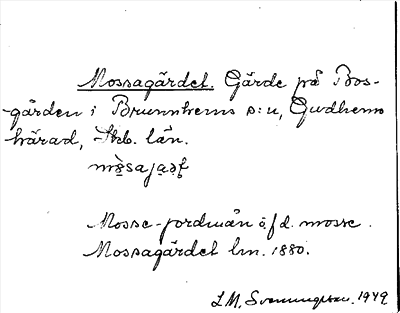 Mossagärdet. Gärde på Bos-
gården i Brunnhems s:n, Gudhems
härad, Skb. län.
Mosse-jordmån ö, f d. mosse.
Mossagärdet lm. 1880.
L M. Svenungsson. 1949